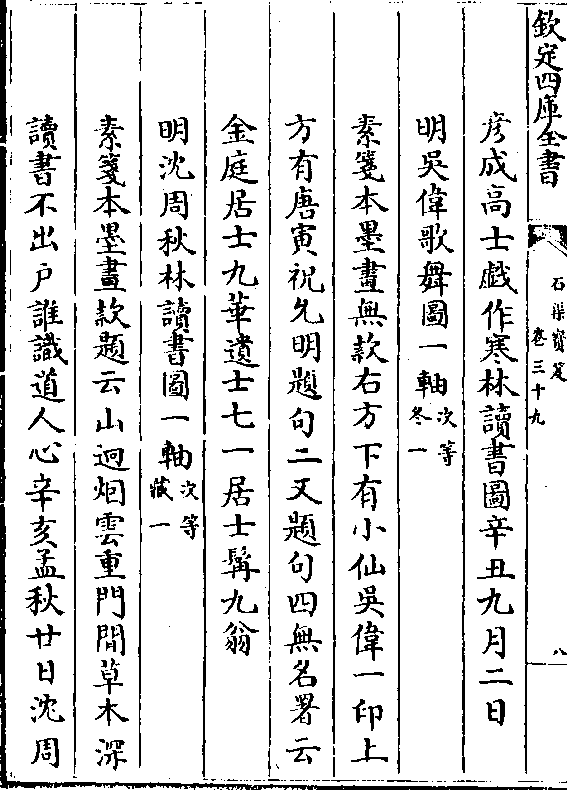 欽定四庫全書
石渠寶笈
卷三十九
八
彦成高士戲作寒林讀書圖辛丑九月二日
明吳偉歌舞圖一軸次等冬一
素箋本墨畫無款右方下有小仙吳偉一印上
方有唐寅祝允明題句二又題句四無名署云
金庭居士九華遺士七一居士髯九翁
明沈周秋林讀書圖一軸次等藏一
素箋本墨畫款題云山迥烟雲重門閒草木深
讀書不出户誰識道人心辛亥孟秋廿日沈周